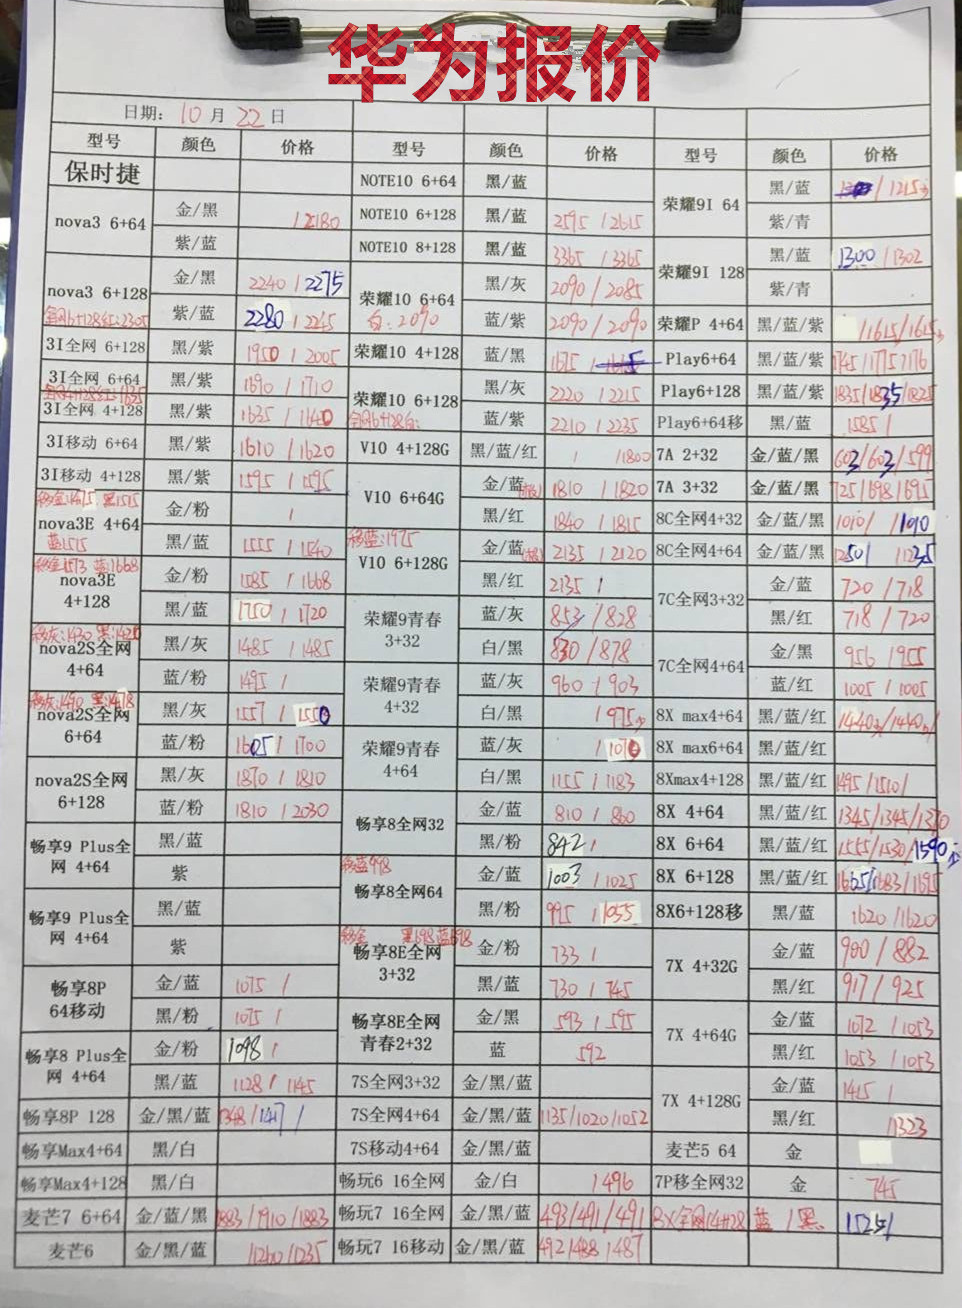 华为报价
日期: 10 月 22 日
型号 颜色 价格 型号 颜色 价格 型号 颜色 价格
保时捷
nova3 6+64 金/黑 / 2180
紫/蓝
nova3 6+128 金/黑 2240 / 2275
全网6+128红:2305 紫/蓝 2280 / 2245
3I全网 6+128 黑/紫 1950 / 2005
3I全网 6+64 黑/紫 1690 / 1710
3I全网 4+128 黑/紫 1635 / 1640
3I移动 6+64 黑/紫 1610 / 1620
3I移动 4+128 黑/紫 1595 / 1595
移金:1475 黑1515
nova3E 4+64 金/粉 /
蓝1515 黑/蓝 1555 / 1540
移金1573 蓝:1668
nova3E 4+128 金/粉 1585 / 1668
黑/蓝 1750 / 1720
移灰:1430 黑:1420
nova2S全网 4+64 黑/灰 1485 / 1485
蓝/粉 1495 /
移灰:1490 黑1478
nova2S全网 6+64 黑/灰 1557 / 1550
蓝/粉 1605 / 1700
nova2S全网 6+128 黑/灰 1870 / 1810
蓝/粉 1810 / 2030
畅享9 Plus全网 4+64 黑/蓝
紫
畅享9 Plus全网 4+64 黑/蓝
紫
畅享8P 64移动 金/蓝 1075 /
黑/粉 1075 /
畅享8 Plus全网 4+64 金/粉 1098 /
黑/蓝 1128 / 1145
畅享8P 128 金/黑/蓝 1348 / 1417 /
畅享Max4+64 黑/白
畅享Max4+128 黑/白
麦芒7 6+64 金/蓝/黑 1883 / 1910 / 1883
麦芒6 金/黑/蓝 / 1260 / 1235
NOTE10 6+64 黑/蓝
NOTE10 6+128 黑/蓝 2595 / 2615
NOTE10 8+128 黑/蓝 3365 / 3365
荣耀10 6+64 黑/灰 2090 / 2085
白:2090 蓝/紫 2090 / 2090
荣耀10 4+128 蓝/黑 1675 /
荣耀10 6+128 黑/灰 2220 / 2215
全网6+128白: 蓝/紫 2210 / 2235
V10 4+128G 黑/蓝/红 / /1800
V10 6+64G 金/蓝 1810 / 1820
黑/红 1840 / 1815
移蓝:1975
V10 6+128G 金/蓝 2135 / 2120
黑/红 2135 /
荣耀9青春 3+32 蓝/灰 853 / 828
白/黑 830 / 878
荣耀9青春 4+32 蓝/灰 960 / 903
白/黑 / 975
荣耀9青春 4+64 蓝/灰 / 1070
白/黑 1155 / 1183
畅享8全网32 金/蓝 810 / 860
黑/粉 842 /
移蓝998
畅享8全网64 金/蓝 1003 / 1025
黑/粉 995 / 1055
移金 黑698 蓝698
畅享8E全网 3+32 金/粉 733 /
黑/蓝 730 / 745
畅享8E全网 青春2+32 金/黑 593 / 595
蓝 592
7S全网3+32 金/黑/蓝
7S全网4+64 金/黑/蓝 1135/1020/1052
7S移动4+64 金/黑/蓝
畅玩6 16全网 金/白 / 496
畅玩7 16全网 金/黑/蓝 493/491/491
畅玩7 16移动 金/黑/蓝 492/488/487
荣耀9I 64 黑/蓝 / 1215
紫/青
荣耀9I 128 黑/蓝 1300 / 1302
紫/青
荣耀P 4+64 黑/蓝/紫 /1615/1615
Play6+64 黑/蓝/紫 1745/1775/176
Play6+128 黑/蓝/紫 1835/1835/1825
Play6+64移 黑/蓝 1585 /
7A 2+32 金/蓝/黑 603/603/599
7A 3+32 金/蓝/黑 725/698/695
8C全网4+32 金/蓝/黑 1010/ /1010
8C全网4+64 金/蓝/黑 1250/ /1235
7C全网3+32 金/蓝 720 / 718
黑/红 718 / 720
7C全网4+64 金/黑 956 / 955
蓝/红 1005 / 1005
8X max4+64 黑/蓝/红 1440/1440/
8X max6+64 黑/蓝/红
8Xmax4+128 黑/蓝/红 1495/1510/
8X 4+64 黑/蓝/红 1345/1345/1370
8X 6+64 黑/蓝/红 1555/1530/1590
8X 6+128 黑/蓝/红 1665/1683/1695
8X6+128移 黑/蓝 1620 /1620
7X 4+32G 金/蓝 900 / 882
黑/红 917 / 925
7X 4+64G 金/蓝 1072 / 1053
黑/红 1053 / 1053
7X 4+128G 金/蓝 1415 /
黑/红 /1323
麦芒5 64 金
7P移全网32 金 745
8X全网4+128 蓝 / 黑 1525/